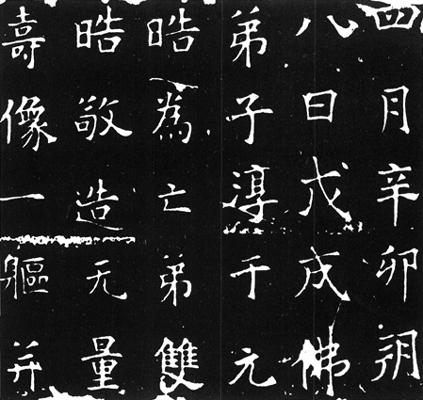 四月辛卯朔
八日戊戌佛
弟子淳于元
晧為亡弟雙
晧敬造无量
壽像一軀并